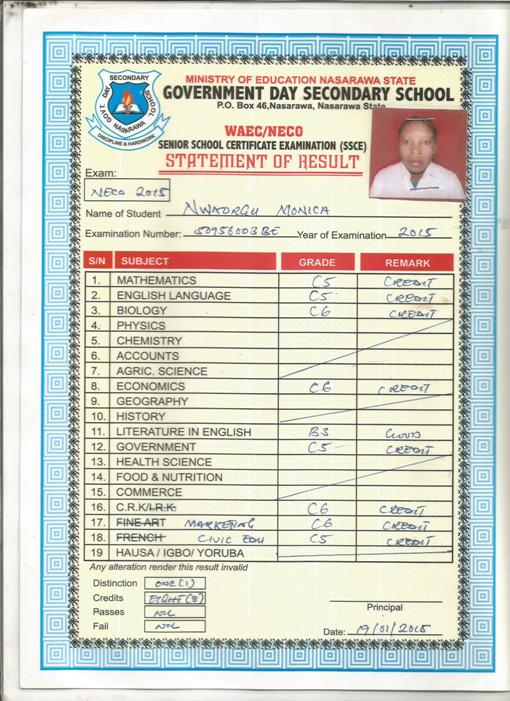 MINISTRY OF EDUCATION NASARAWA STATE
GOVERNMENT DAY SECONDARY SCHOOL
P.O. Box 46, Nasarawa, Nasarawa State
SECONDARY SCHOOL
GOVT. DAY
NASARAWA
DISCIPLINE & HARDWORK
WAEC/NECO
SENIOR SCHOOL CERTIFICATE EXAMINATION (SSCE)
STATEMENT OF RESULT
Exam:
NECO 2015
Name of Student NWAORGU MONICA
Examination Number: 50956003BE Year of Examination 2015
S/N SUBJECT GRADE REMARK
1. MATHEMATICS C5 CREDIT
2. ENGLISH LANGUAGE C5 CREDIT
3. BIOLOGY C6 CREDIT
4. PHYSICS
5. CHEMISTRY
6. ACCOUNTS
7. AGRIC. SCIENCE
8. ECONOMICS C6 CREDIT
9. GEOGRAPHY
10. HISTORY
11. LITERATURE IN ENGLISH B3 GOOD
12. GOVERNMENT C5 CREDIT
13. HEALTH SCIENCE
14. FOOD & NUTRITION
15. COMMERCE
16. C.R.K/I.R.K. C6 CREDIT
17. FINE ART MARKETING C6 CREDIT
18. FRENCH CIVIC EDU C5 CREDIT
19 HAUSA / IGBO/ YORUBA
Any alteration render this result invalid
Distinction ONE (1)
Credits EIGHT (8)
Passes NIL
Fail NIL
Principal
Date: 19/01/2015